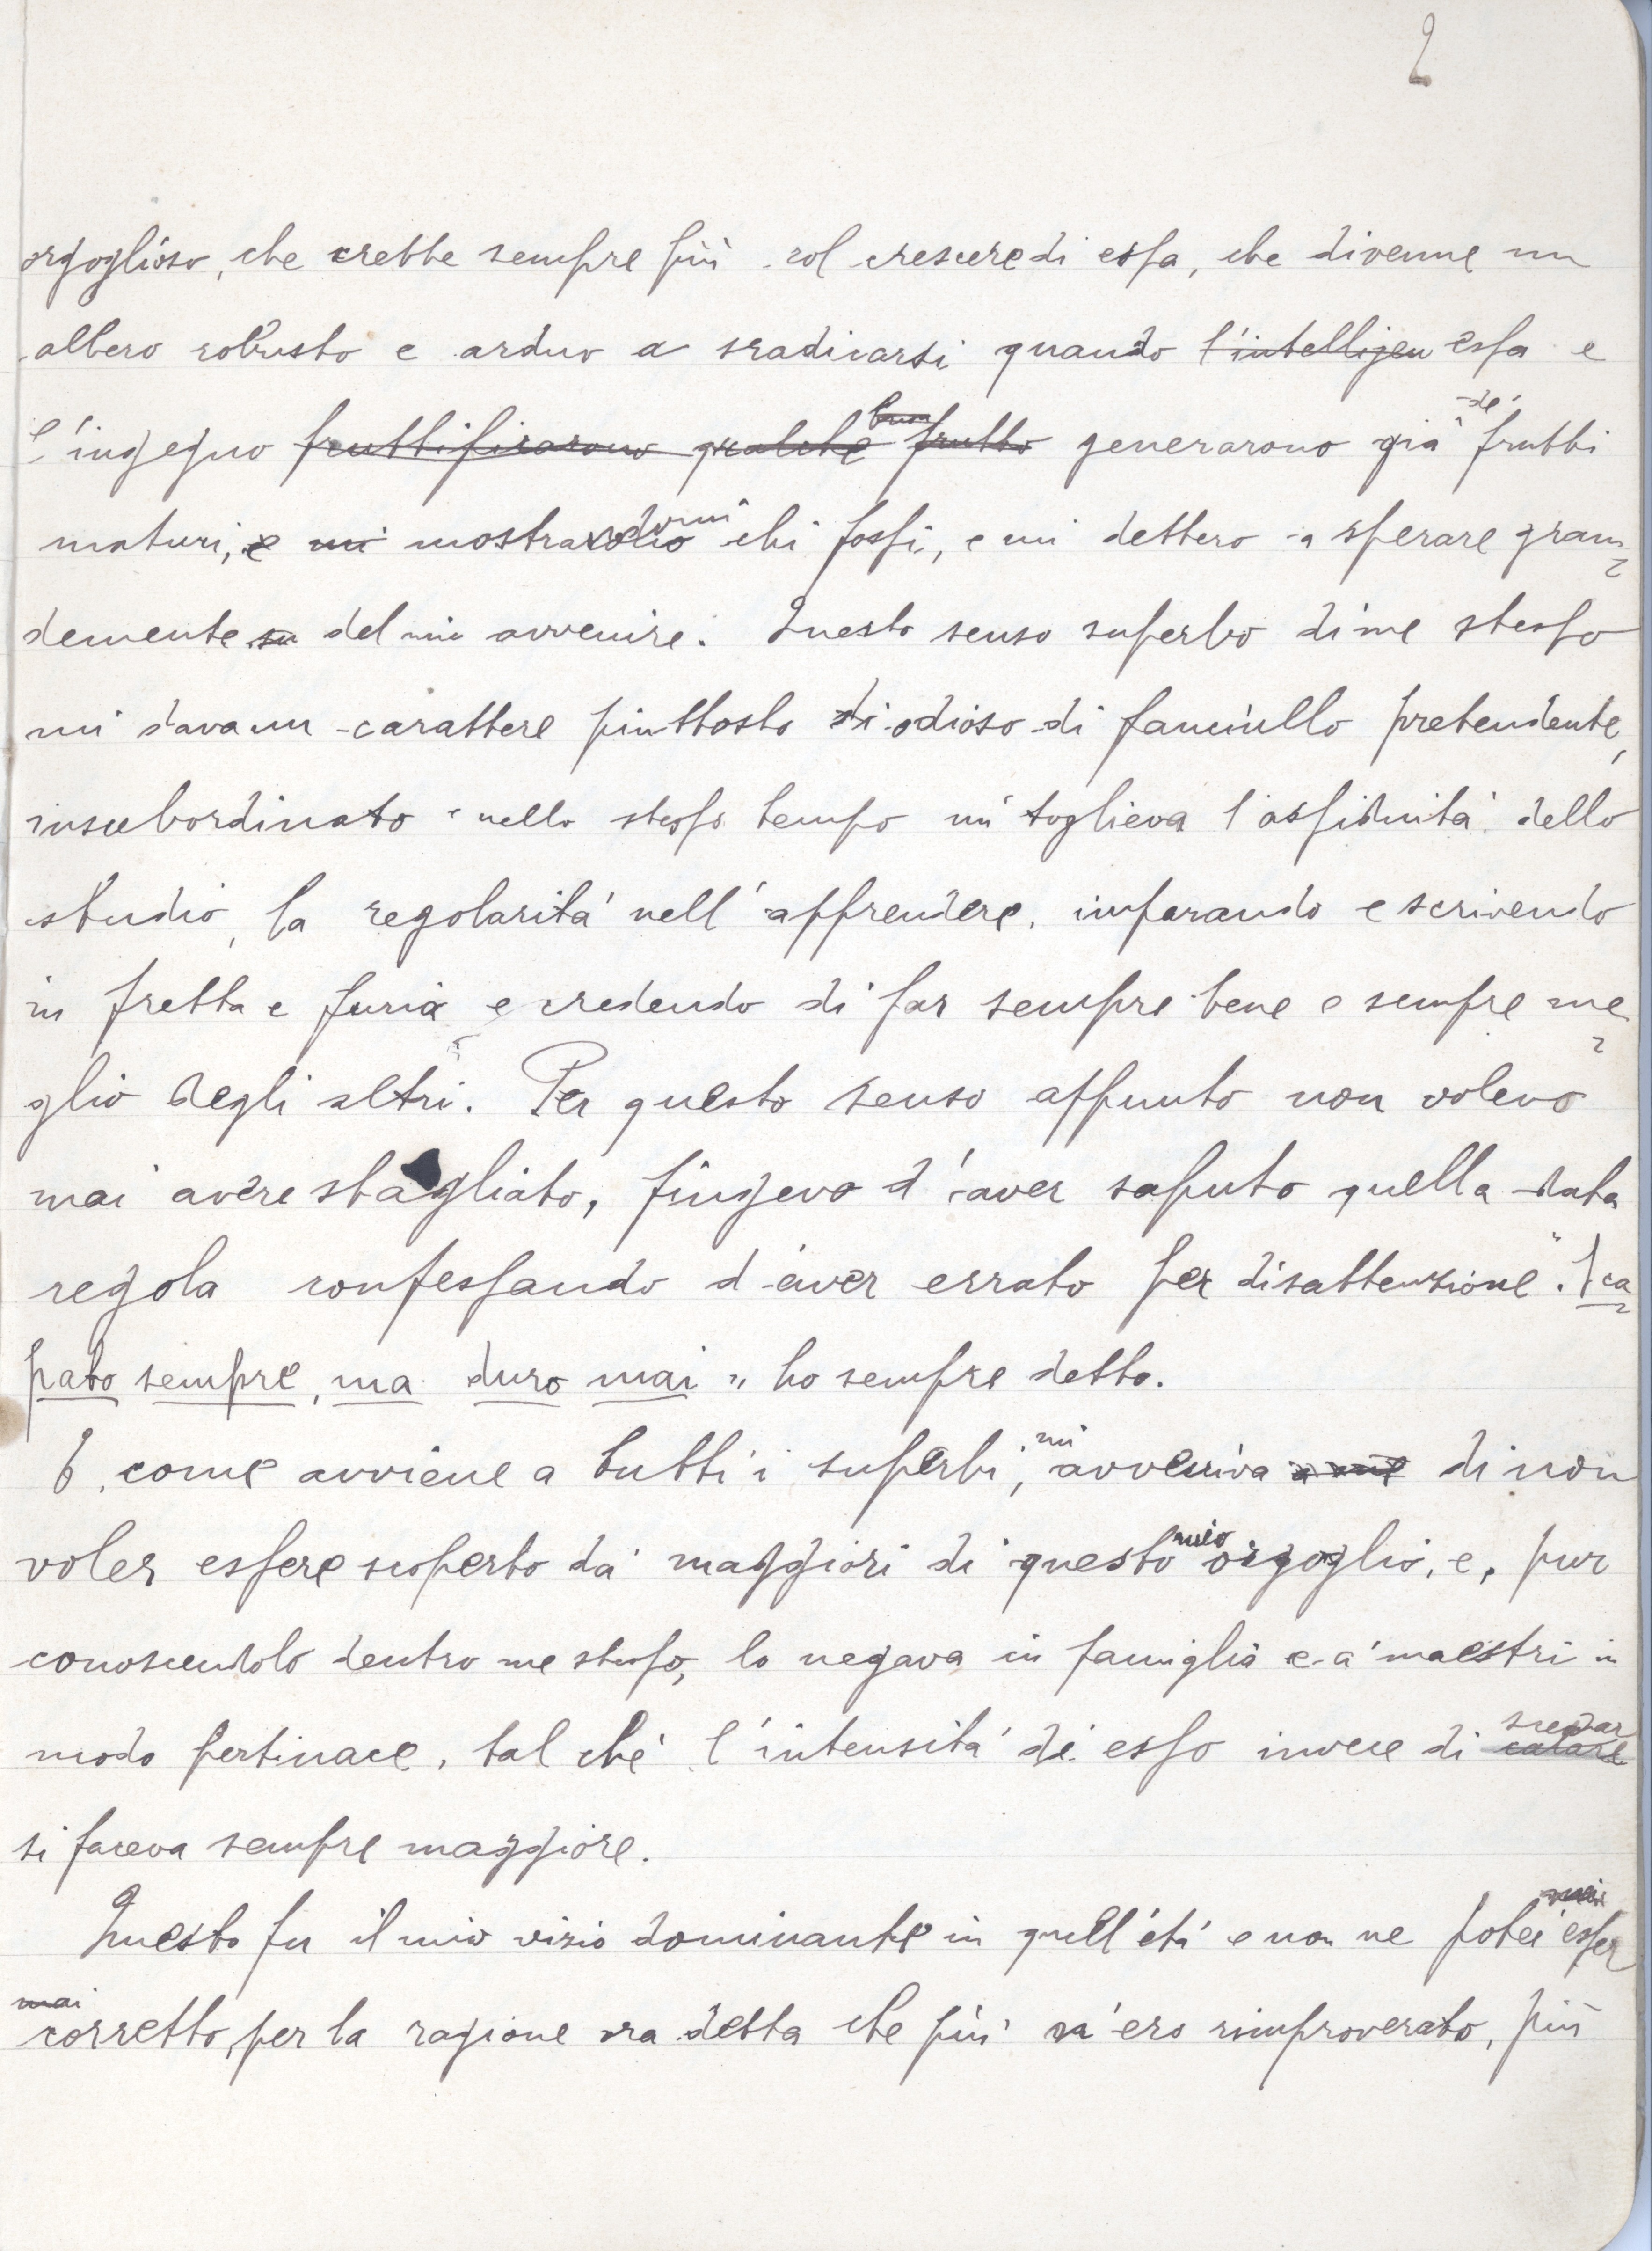 2
orgoglioso, che crebbe sempre più col crescere di essa, che divenne un
albero robusto e arduo a sradicarsi quando l'intelligen essa e
l'ingegno fruttificarono qualche buon frutto generarono già de' frutti
maturi, e mi mostrandomi chi fossi, e mi dettero a sperare gran-
demente su del mio avvenire. Questo senso superbo di me stesso
mi dava un carattere piuttosto di odioso di fanciullo pretendente,
insubordinato e nello stesso tempo mi toglieva l'assiduità dello
studio, la regolarità nell'apprendere, imparando e scrivendo
in fretta e furia e credendo di far sempre bene e sempre me-
glio degli altri. Per questo senso appunto non volevo
mai avere sbagliato, fingevo d'aver saputo quella data
regola confessando d'aver errato per disattenzione". Sca-
pato sempre, ma duro mai " ho sempre detto.
E, come avviene a tutti i superbi, mi avveniva a me di non
voler essere scoperto da' maggiori di questo mio orgoglio, e, pur
conoscendolo dentro me stesso, lo negava in famiglia e a' maestri in
modo pertinace, tal ché l'intensità di esso invece di calare scemar
si faceva sempre maggiore.
Questo fu il mio vizio dominante in quell'età e non ne potei mai esser
mai corretto, per la ragione ora detta che più n'ero rimproverato, più